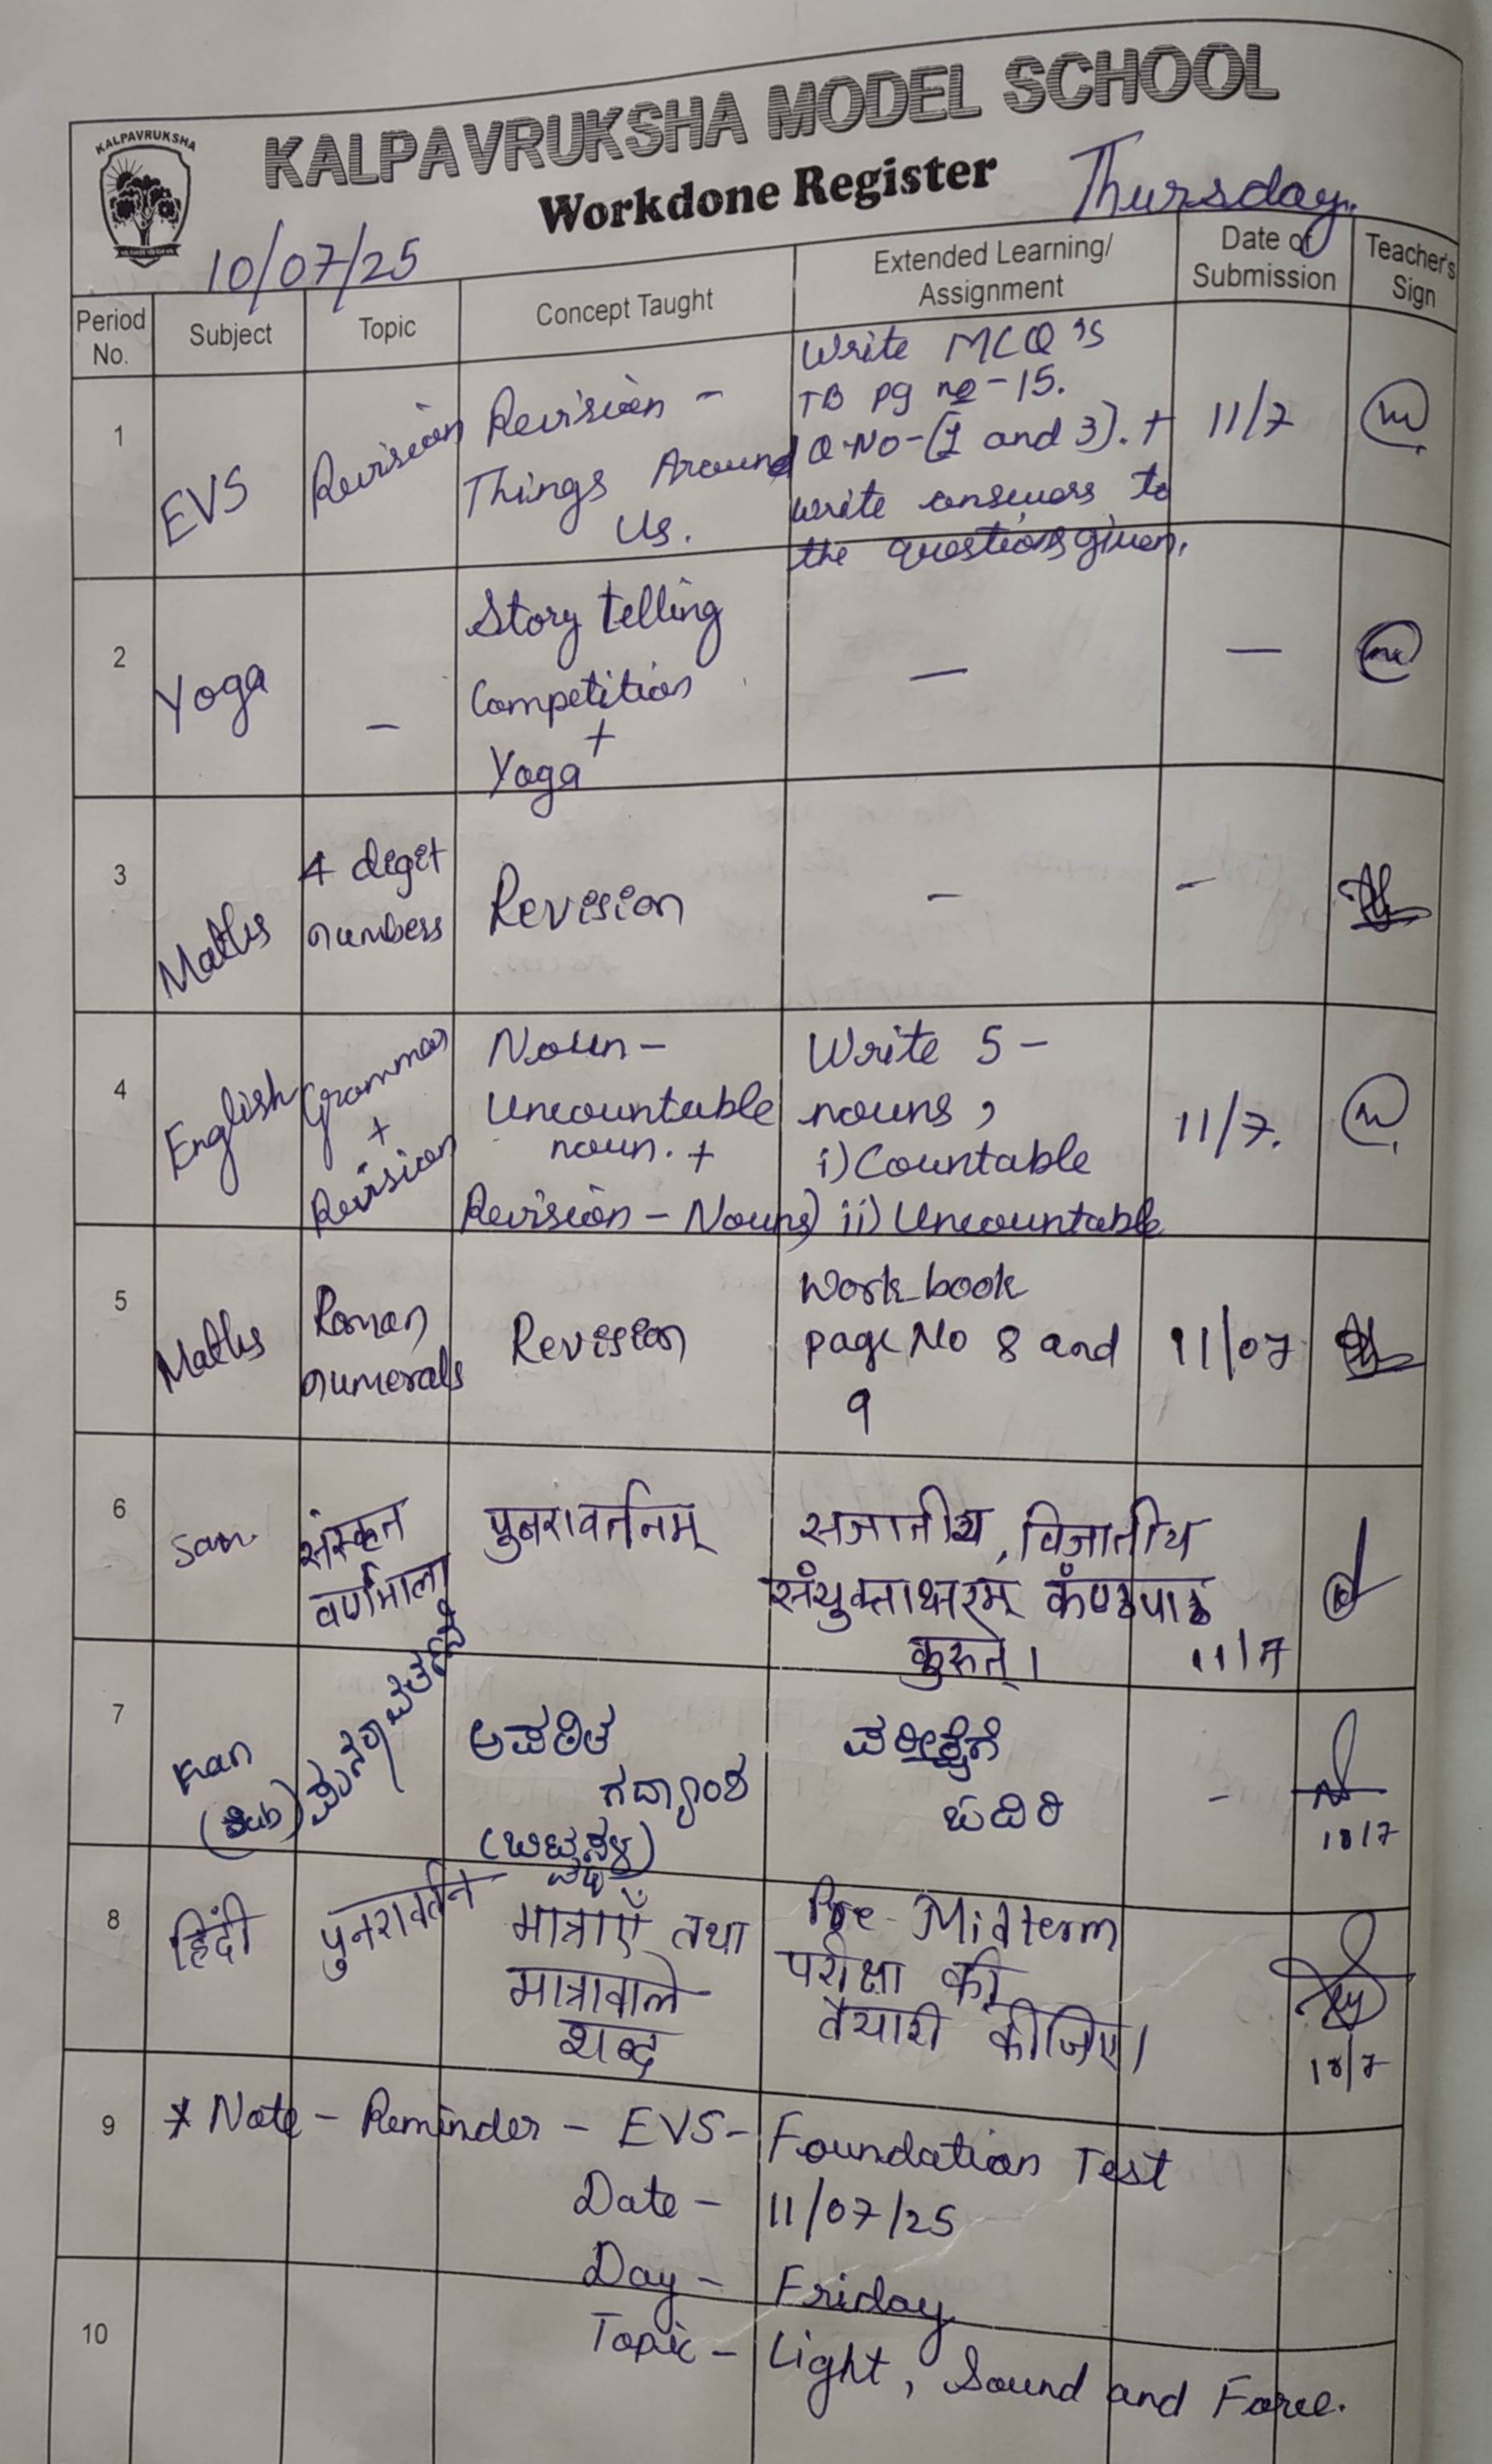 KALPAVRUKSHA
KALPAVRUKSHA MODEL SCHOOL
Workdone Register
Thursday.
10/07/25
Period No.
Subject
Topic
Concept Taught
Extended Learning/ Assignment
Date of Submission
Teacher's Sign
1
EVS
Revision
Revision -
Things Around
Us.
Write MCQ's
TB pg no - 15.
Q.No-(1 and 3). +
write answers to
the questions given.
11/7
2
Yoga
-
Story telling
Competition
+
Yoga
-
-
3
Maths
4 digit
numbers
Revision
-
-
4
English
Grammar
+
Revision
Noun -
Uncountable
noun. +
Revision - Nouns)
Write 5 -
nouns,
i) Countable
ii) Uncountable
11/7.
5
Maths
Roman
numerals
Revision
Work book
page No 8 and
9
11/07
6
San
संस्कृत
वर्णमाला
पुनरावर्तनम्
सजातीय, विजातीय
संयुक्ताक्षरम् कंण्ठपाठ
कुरुत्।
11/7
7
Kan
(Sub)
ಅಪಠಿತ
ಗದ್ಯಾಂಶ
ಪರೀಕ್ಷೆಗೆ
ಓದಿರಿ
-
10/7
8
हिंदी
पुनरावर्तन
मात्राएँ तथा
मात्रावाले
शब्द
Pre-Midterm
परीक्षा की
तैयारी कीजिए।
10/7
9
* Note - Reminder - EVS - Foundation Test
Date - 11/07/25
Day - Friday
10
Topic - Light, Sound and Force.